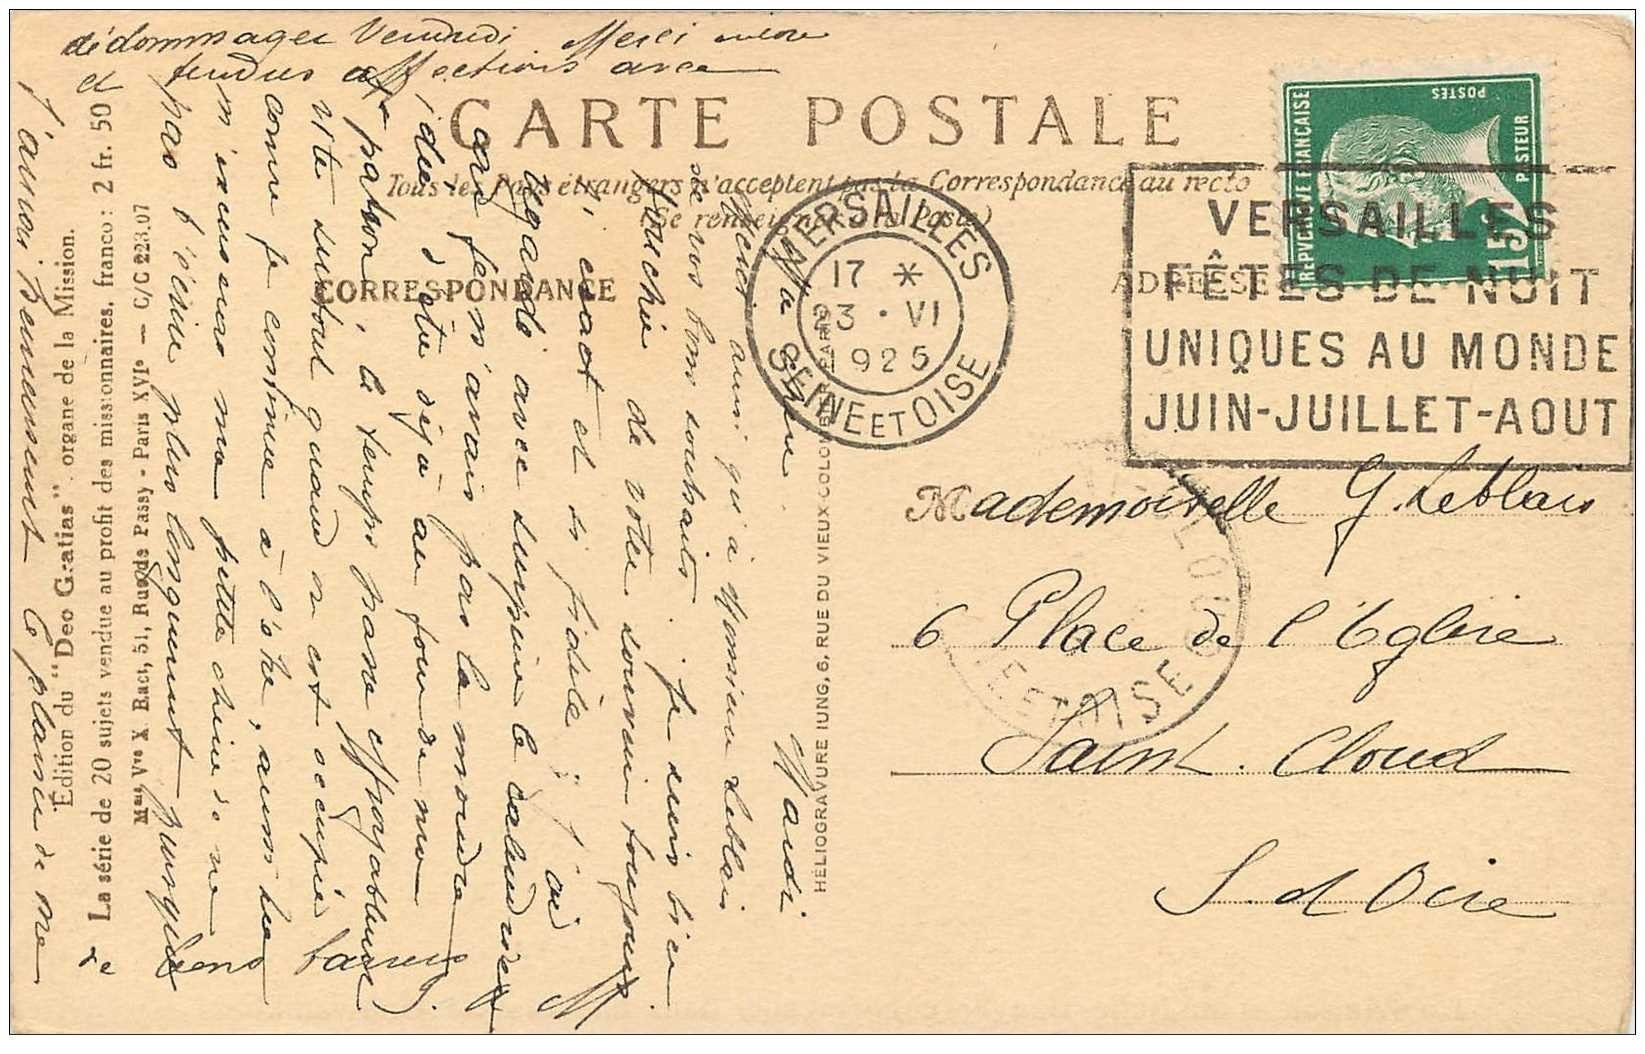 CARTE POSTALE
Tous les Pays étrangers n'acceptent pas la Correspondance au recto
(Se renseigner à la Poste)
CORRESPONDANCE
ADRESSE
REPVBLIQVE FRANÇAISE
POSTES
PASTEUR
15c
VERSAILLES
17 *
23 · VI
1925
SEINE ET OISE
VERSAILLES
FÊTES DE NUIT
UNIQUES AU MONDE
JUIN-JUILLET-AOUT
Mademoiselle G. Leblais
6 Place de l'Eglise
Saint. Cloud
S. et Oise
CLOUD
ET OISE
HELIOGRAVURE IUNG, 6, RUE DU VIEUX-COLOMBIER, PARIS
Édition du "Deo Gratias", organe de la Mission.
La série de 20 sujets vendue au profit des missionnaires, franco : 2 fr. 50
Mme Vve X. Ract, 51, Rue de Passy - Paris XVIe — C/C 223.07
Mardi
Merci ainsi qu'à Monsieur Leblais
de vos bons souhaits. Je suis bien
touchée de votre souvenir toujours
si exact et si fidèle j'ai
regardé avec surprise le calendrier
car je n'avais pas la moindre
idée d'être déjà au jour de ma
patronne, le temps passe effroyablement
vite surtout quand on est occupée
comme je continue à l'être, aussi
m'excuserez ma petite chérie de ne
pas t'écrire plus longuement puisque
j'aurai heureusement le plaisir de me
dédommager Vendredi Merci encore
et tendres affections avec
de bons baisers